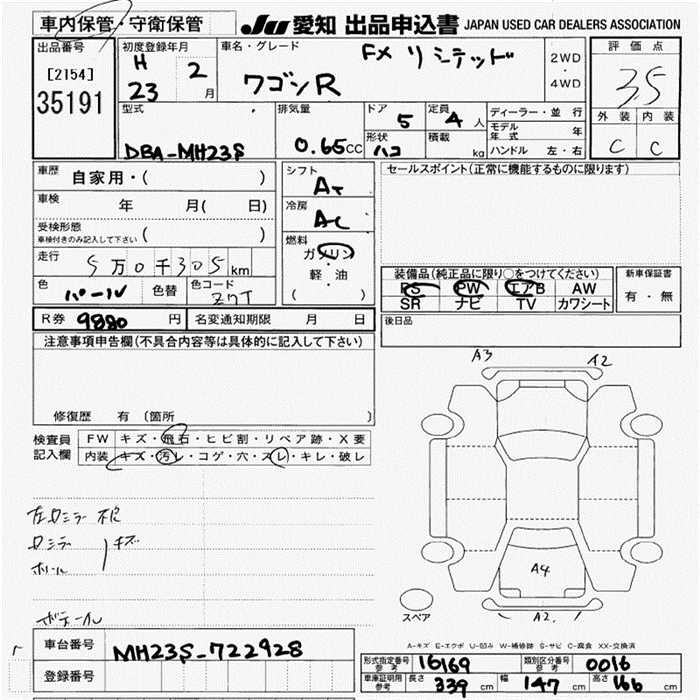 車内保管・守衛保管 JU 愛知 出品申込書 JAPAN USED CAR DEALERS ASSOCIATION
出品番号 初度登録年月 車名・グレード FX リミテッド 2WD・4WD 評価点
[2154] H 23 2月 ワゴンR 3.5
35191 外装 内装
型式 排気量 ドア 5 定員 4人 ディーラー・並行 C C
モデル年式 年
DBA-MH23S 0.65CC 形状 ハコ 積載 kg ハンドル 左・右
車歴 自家用・( ) シフト AT セールスポイント(正常に機能するものに限ります)
車検 年 月( 日) 冷房 AC
受検形態
車検付きのみ記入して下さい ( )
燃料 ガソリン・軽油 ( )
走行 5万0千305km
装備品(純正品に限り○をつけてください) 新車保証書
色 パール 色替 色コード Z7T PS PW エアB AW 有・無
SR ナビ TV カワシート
R券 9880円 名変通知期限 月 日 後日品
注意事項申告欄(不具合内容等は具体的に記入して下さい)
A3 A2
修復歴 有 〔箇所 〕
検査員記入欄 FW キズ・飛石・ヒビ割・リペア跡・X要
内装 キズ・汚レ・コゲ・穴・スレ・キレ・破レ
左ロミラー
ロミラー キズ
ホイール
A4
A2
スペア
A-キズ E-エクボ U-凹み W-補修跡 S-サビ C-腐食 XX-交換済
車台番号 MH23S-722928
形式指定番号 参考 16169 類別区分番号 参考 0016
登録番号 車庫証明用 参考 長さ 339cm 幅 147cm 高さ 166cm